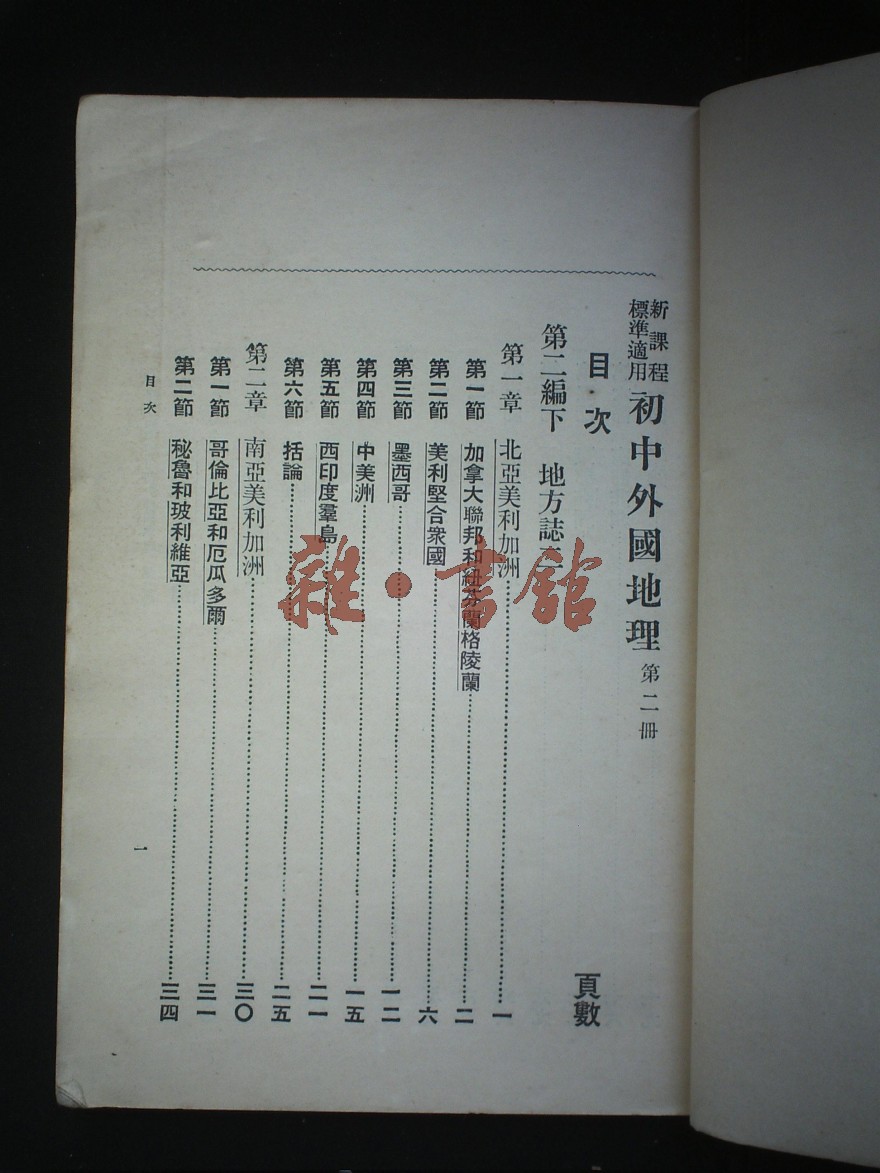 新課程標準適用 初中外國地理 第二冊
目次 頁數
第二編下 地方誌
第一章 北亞美利加洲 一
第一節 加拿大聯邦和紐芬蘭格陵蘭 二
第二節 美利堅合衆國 六
第三節 墨西哥 一二
第四節 中美洲 一五
第五節 西印度羣島 二一
第六節 括論 二五
第二章 南亞美利加洲 三〇
第一節 哥倫比亞和厄瓜多爾 三一
第二節 秘魯和玻利維亞 三四
目次 一
雜·書館